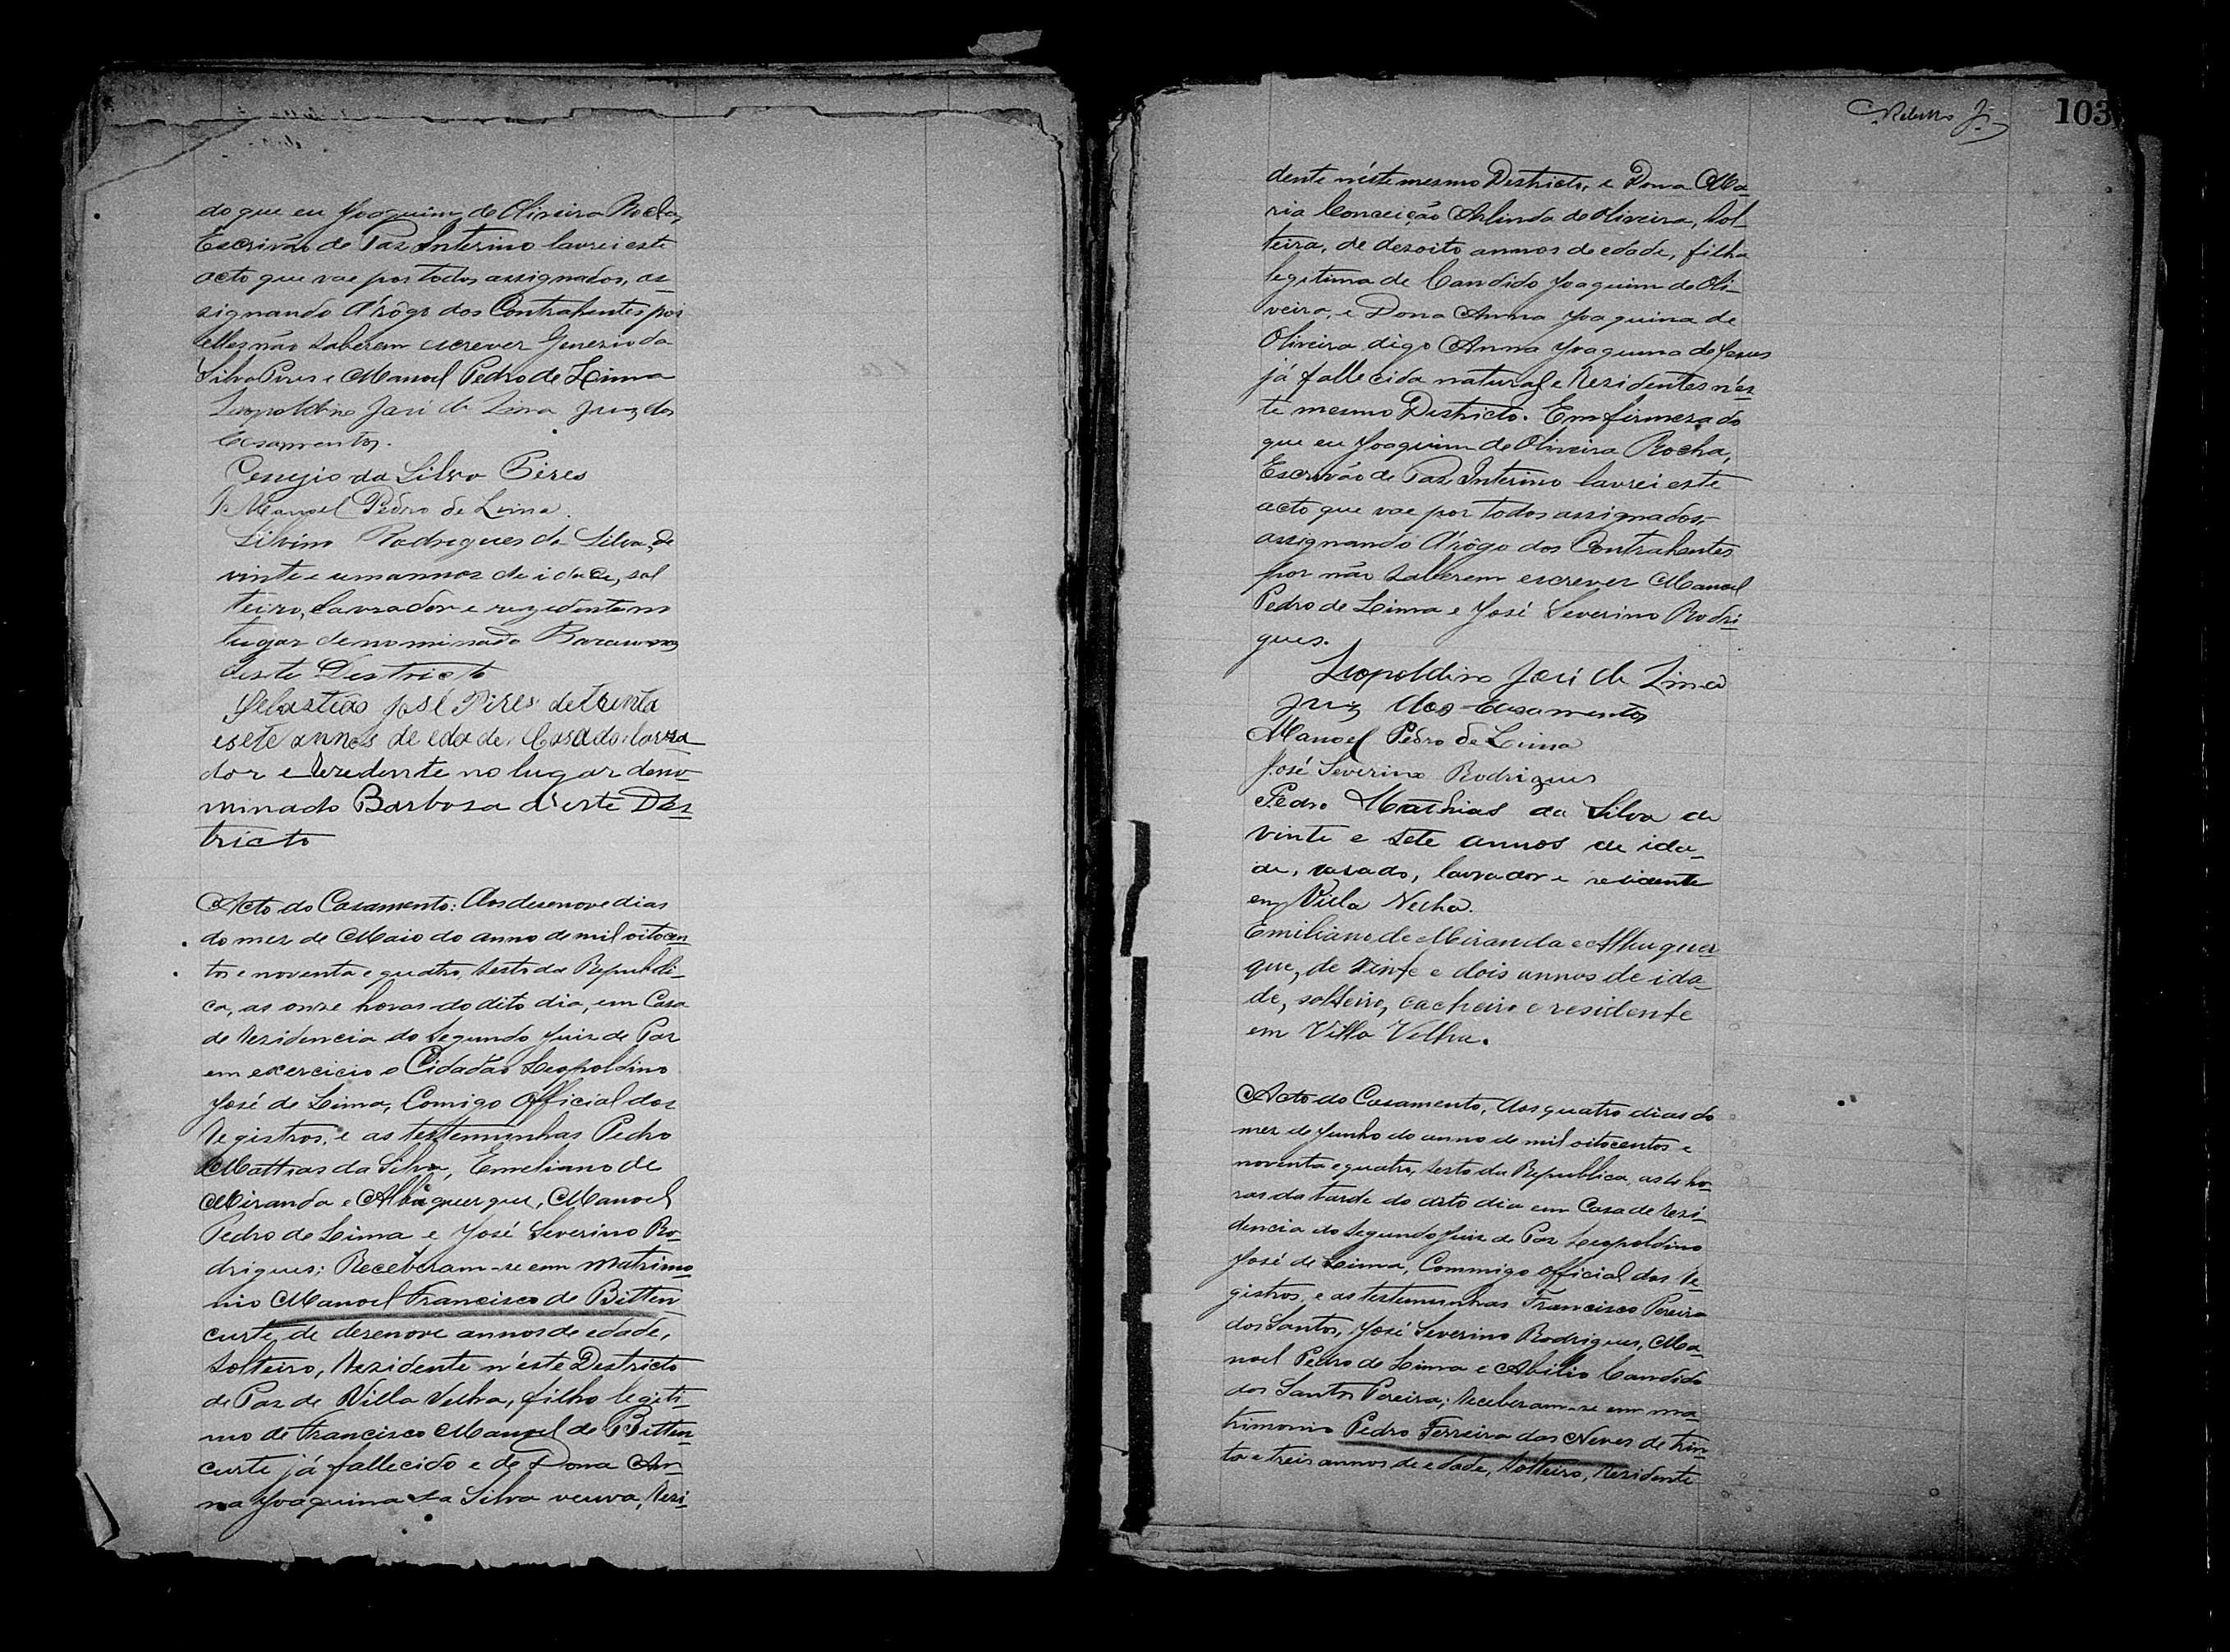 do que eu Joaquim de Oliveira Rocha,
Escrivão de Paz Interino lavrei este
acto que vae por todos assignados, as
signando A'rôgo dos Contrahentes por
elles não saberem escrever Genezio da
Silva Pires e Manoel Pedro de Lima
Leopoldino José de Lima Juiz dos
Casamentos.
Genezio da Silva Pires
Manoel Pedro de Lima.
Silvino Rodrigues da Silva, de
vinte e um annos de idade, sol
teiro, lavrador e rezidente no
lugar denominado
deste Districto
Sebastião José Pires de trenta
e sete annos de edade, Casado lavra
dor e Rezedente no lugar deno
minado Barbosa d'este Des
tricto
Acto do Casamento: Aos desenove dias
do mez de Maio do anno de mil oitocen
tos e noventa e quatro, sexto da Republi-
ca, as onze horas do dito dia, em Casa
de Rezidencia do Segundo Juiz de Paz
em exercicio o Cidadão Leopoldino
José de Lima, Comigo Official dos
Registros, e as testemunhas Pedro
Mathias da Silva, Emeliano de
Miranda e Albuquerque, Manoel
Pedro de Lima e José Severino Ro-
drigues; Receberam-se em matrimo
nio Manoel Francisco de Bitten
curte, de desenove annos de edade,
Solteiro, Rezidente n'éste Destricto
de Paz de Villa Velha, filho legiti-
mo de Francisco Manoel de Bitten
curte já fallecido e de Dona An-
na Joaquina da Silva veuva, Rezi-
103
dente n'éste mesmo Districto, e Dona Ma-
ria Conceição Arlinda de Oliveira, Sol-
teira, de dezoito annos de edade, filha
legitima de Candido Joaquim de Oli-
veira, e Dona Anna Joaquina de
Oliveira digo Anna Joaquina de Jesus
já fallecida natural e Rezidentes n'es
te mesmo Districto. Em firmeza do
que eu Joaquim de Oliveira Rocha,
Escrivão de Paz Interino lavrei este
acto que vae por todos assignados,
assignando A'rôgo dos Contrahentes
por não saberem escrever Manoel
Pedro de Lima e José Severino Rodri
gues.
Leopoldino José de Lima
Juiz dos Casamentos
Manoel Pedro de Lima
José Severino Rodrigues
Pedro Mathias da Silva de
vinte e sete annos de ida-
de, casado, lavrador e residente
em Villa Velha.
Emiliano de Miranda e Albuquer
que, de vinte e dois annos de ida-
de, solteiro, cacheiro e residente
em Villa Velha.
Acto do Casamento, Aos quatro dias do
mez de Junho do anno de mil oitocentos e
noventa e quatro, sexto da Republica, as ho-
ras da tarde do dito dia em Casa de Rezi-
dencia do Segundo Juiz de Paz Leopoldino
José de Lima, Commigo official dos Re
gistros, e as testemunhas Francisco Pereira
dos Santos, José Severino Rodrigues, Ma-
noel Pedro de Lima e Abilio Candido
dos Santos Pereira; Receberam-se em ma
trimonio Pedro Ferreira das Neves de trin
ta e treis annos de edade, Solteiro, Rezidente